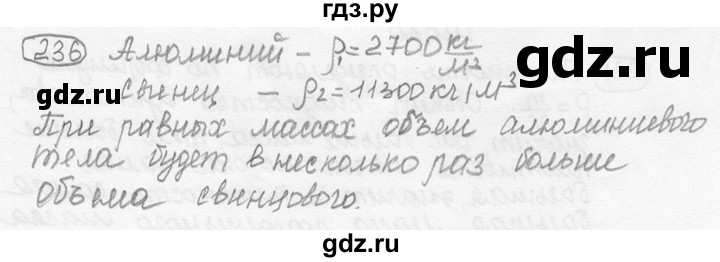 гдз.ру
236 Алюминий - ρ₁=2700 кг/м³
свинец - ρ₂=11300 кг/м³
gdz.ru
При равных массах объем алюминиевого
тела будет в несколько раз больше
объема свинцового.
gdz.ru